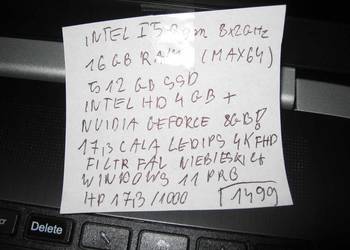 INTEL I5 8gen 8x2GHz
16 GB RAM (MAX64)
512 GB SSD
INTEL HD 4 GB +
NVIDIA GEFORCE 8GB!
17,3 CALA LEDIPS 4K FHD
FILTR FAL NIEBIESKICH
WINDOWS 11 PRO
HP 17,3 /1000 1499
Delete